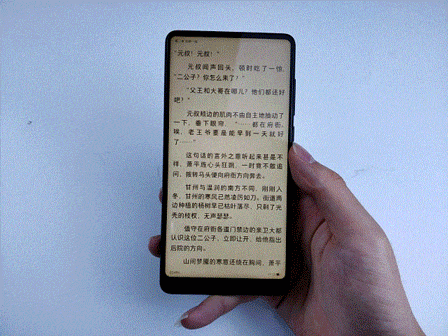 “元叔！元叔！”
元叔闻声回头，顿时吃了一惊，
“二公子？你怎么来了？”
“父王和大哥在哪儿？他们都还好
吧？”
元叔颊边的肌肉不由自主地抽动了
一下，垂下眼帘，“……都在府衙。
唉，老王爷要是能早到一天就好
了……”
这句话的言外之意听起来甚是不
祥，萧平旌心头狂跳，一时竟不敢追
问，拨转马头便向府衙方向奔去。
甘州与温润的南方不同，刚刚入
冬，甘州的寒风已然凌厉如刀。街道两
边种植的杨树早已枯叶落尽，只剩了光
秃的枝杈，无声瑟瑟。
值守在府衙各道门禁边的亲卫大都
认识这位二公子，立即让开，给他指出
后院的方向。
山间梦魇的寒意还绕在胸间，萧平